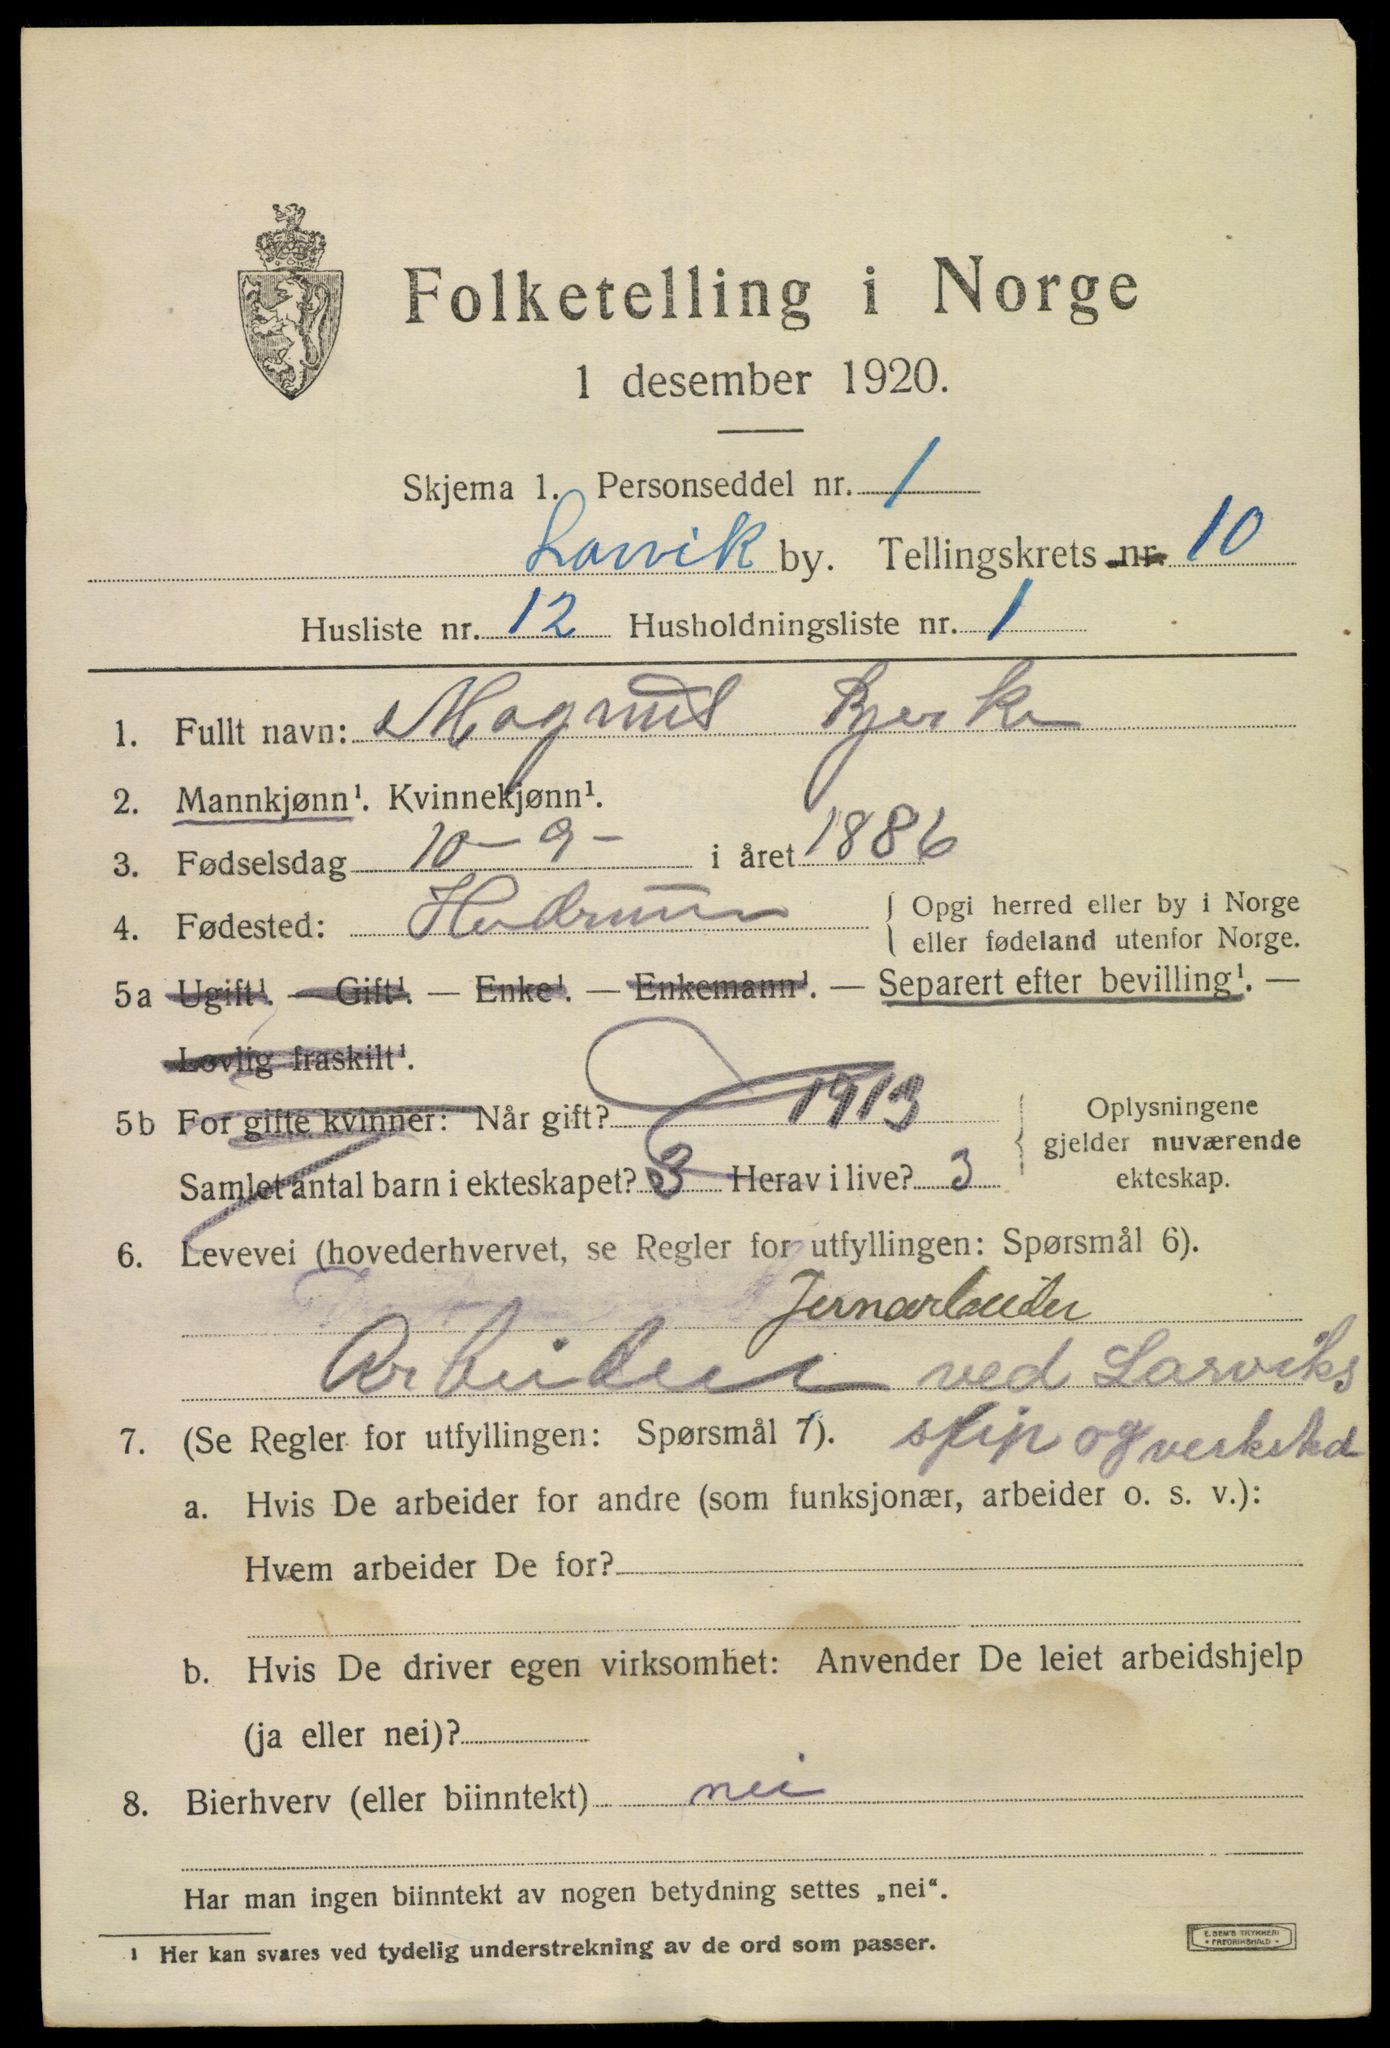 Folketelling i Norge
1 desember 1920.
Skjema 1. Personseddel nr. 1
Larvik by. Tellingskrets nr. 10
Husliste nr. 12 Husholdningsliste nr. 1
1. Fullt navn: Magnus Bjerke
2. Mannkjønn¹. Kvinnekjønn¹.
3. Fødselsdag 10-9- i året 1886
4. Fødested: Hedrum { Opgi herred eller by i Norge
eller fødeland utenfor Norge.
5a Ugift¹. — Gift¹. — Enke¹. — Enkemann¹. — Separert efter bevilling¹. —
Lovlig fraskilt¹.
5b For gifte kvinner: Når gift? 1913
Samlet antal barn i ekteskapet? 3 Herav i live? 3
Oplysningene
gjelder nuværende
ekteskap.
6. Levevei (hovederhvervet, se Regler for utfyllingen: Spørsmål 6).
Jernarbeider
Arbeider ved Larviks
slip og verksted
7. (Se Regler for utfyllingen: Spørsmål 7).
a. Hvis De arbeider for andre (som funksjonær, arbeider o. s. v.):
Hvem arbeider De for?
b. Hvis De driver egen virksomhet: Anvender De leiet arbeidshjelp
(ja eller nei)?
8. Bierhverv (eller biinntekt) nei
Har man ingen biinntekt av nogen betydning settes „nei“.
¹ Her kan svares ved tydelig understrekning av de ord som passer.
E. SEM'S TRYKKERI
FREDRIKSHALD